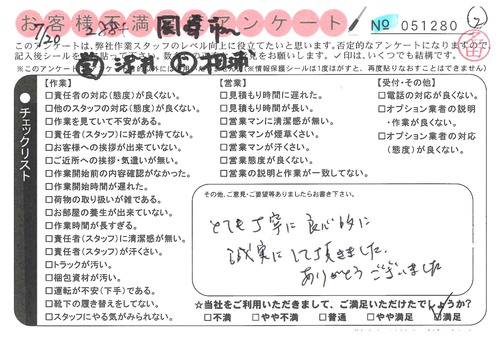 お客様不満足アンケート № 051280 ②
7/20
このアンケートは、弊社作業スタッフのレベル向上に役立てたいと思います。否定的なアンケートになりますので、
※このアンケート
【作業】
□責任者の対応(態度)が良くない。
□他のスタッフの対応(態度)が良くない。
□作業を見ていて不安がある。
□責任者(スタッフ)に好感が持てない。
□お客様への挨拶が出来ていない。
□ご近所への挨拶・気遣いが無い。
□作業開始前の内容確認がなかった。
□作業開始時間が遅れた。
□荷物の取り扱いが雑である。
□お部屋の養生が出来ていない。
□作業時間が長すぎる。
□責任者(スタッフ)に清潔感が無い。
□責任者(スタッフ)が汗くさい。
□トラックが汚い。
□梱包資材が汚い。
□運転が不安(下手)である。
□靴下の履き替えをしてない。
□スタッフにやる気がみられない。
【営業】
□見積もり時間に遅れた。
□見積もり時間が長い。
□営業マンに清潔感が無い。
□営業マンが煙草くさい。
□営業マンが汗くさい。
□営業態度が良くない。
□営業の説明と作業が一致してない。
【受付・その他】
□電話の対応が良くない。
□オプション業者の説明
・作業が良くない。
□オプション業者の対応
(態度)が良くない。
チェックリスト
その他、ご意見・ご要望等ありましたらお書き下さい。
とても丁寧に良心的に
誠実にして頂きました。
ありがとうございました
☆当社をご利用いただきまして、ご満足いただけたでしょうか?
□不満 □やや不満 □普通 □やや満足 ☑満足